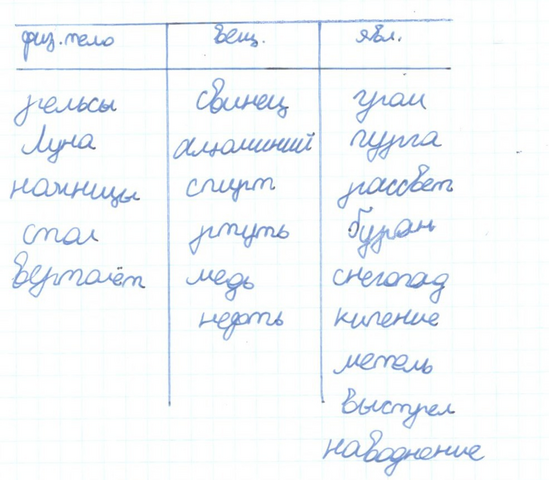 физ. тело вещ. явл.
рельсы свинец гром
Луна алюминий пурга
ножницы спирт рассвет
стол ртуть буран
вертолёт медь снегопад
нефть кипение
метель
выстрел
наводнение